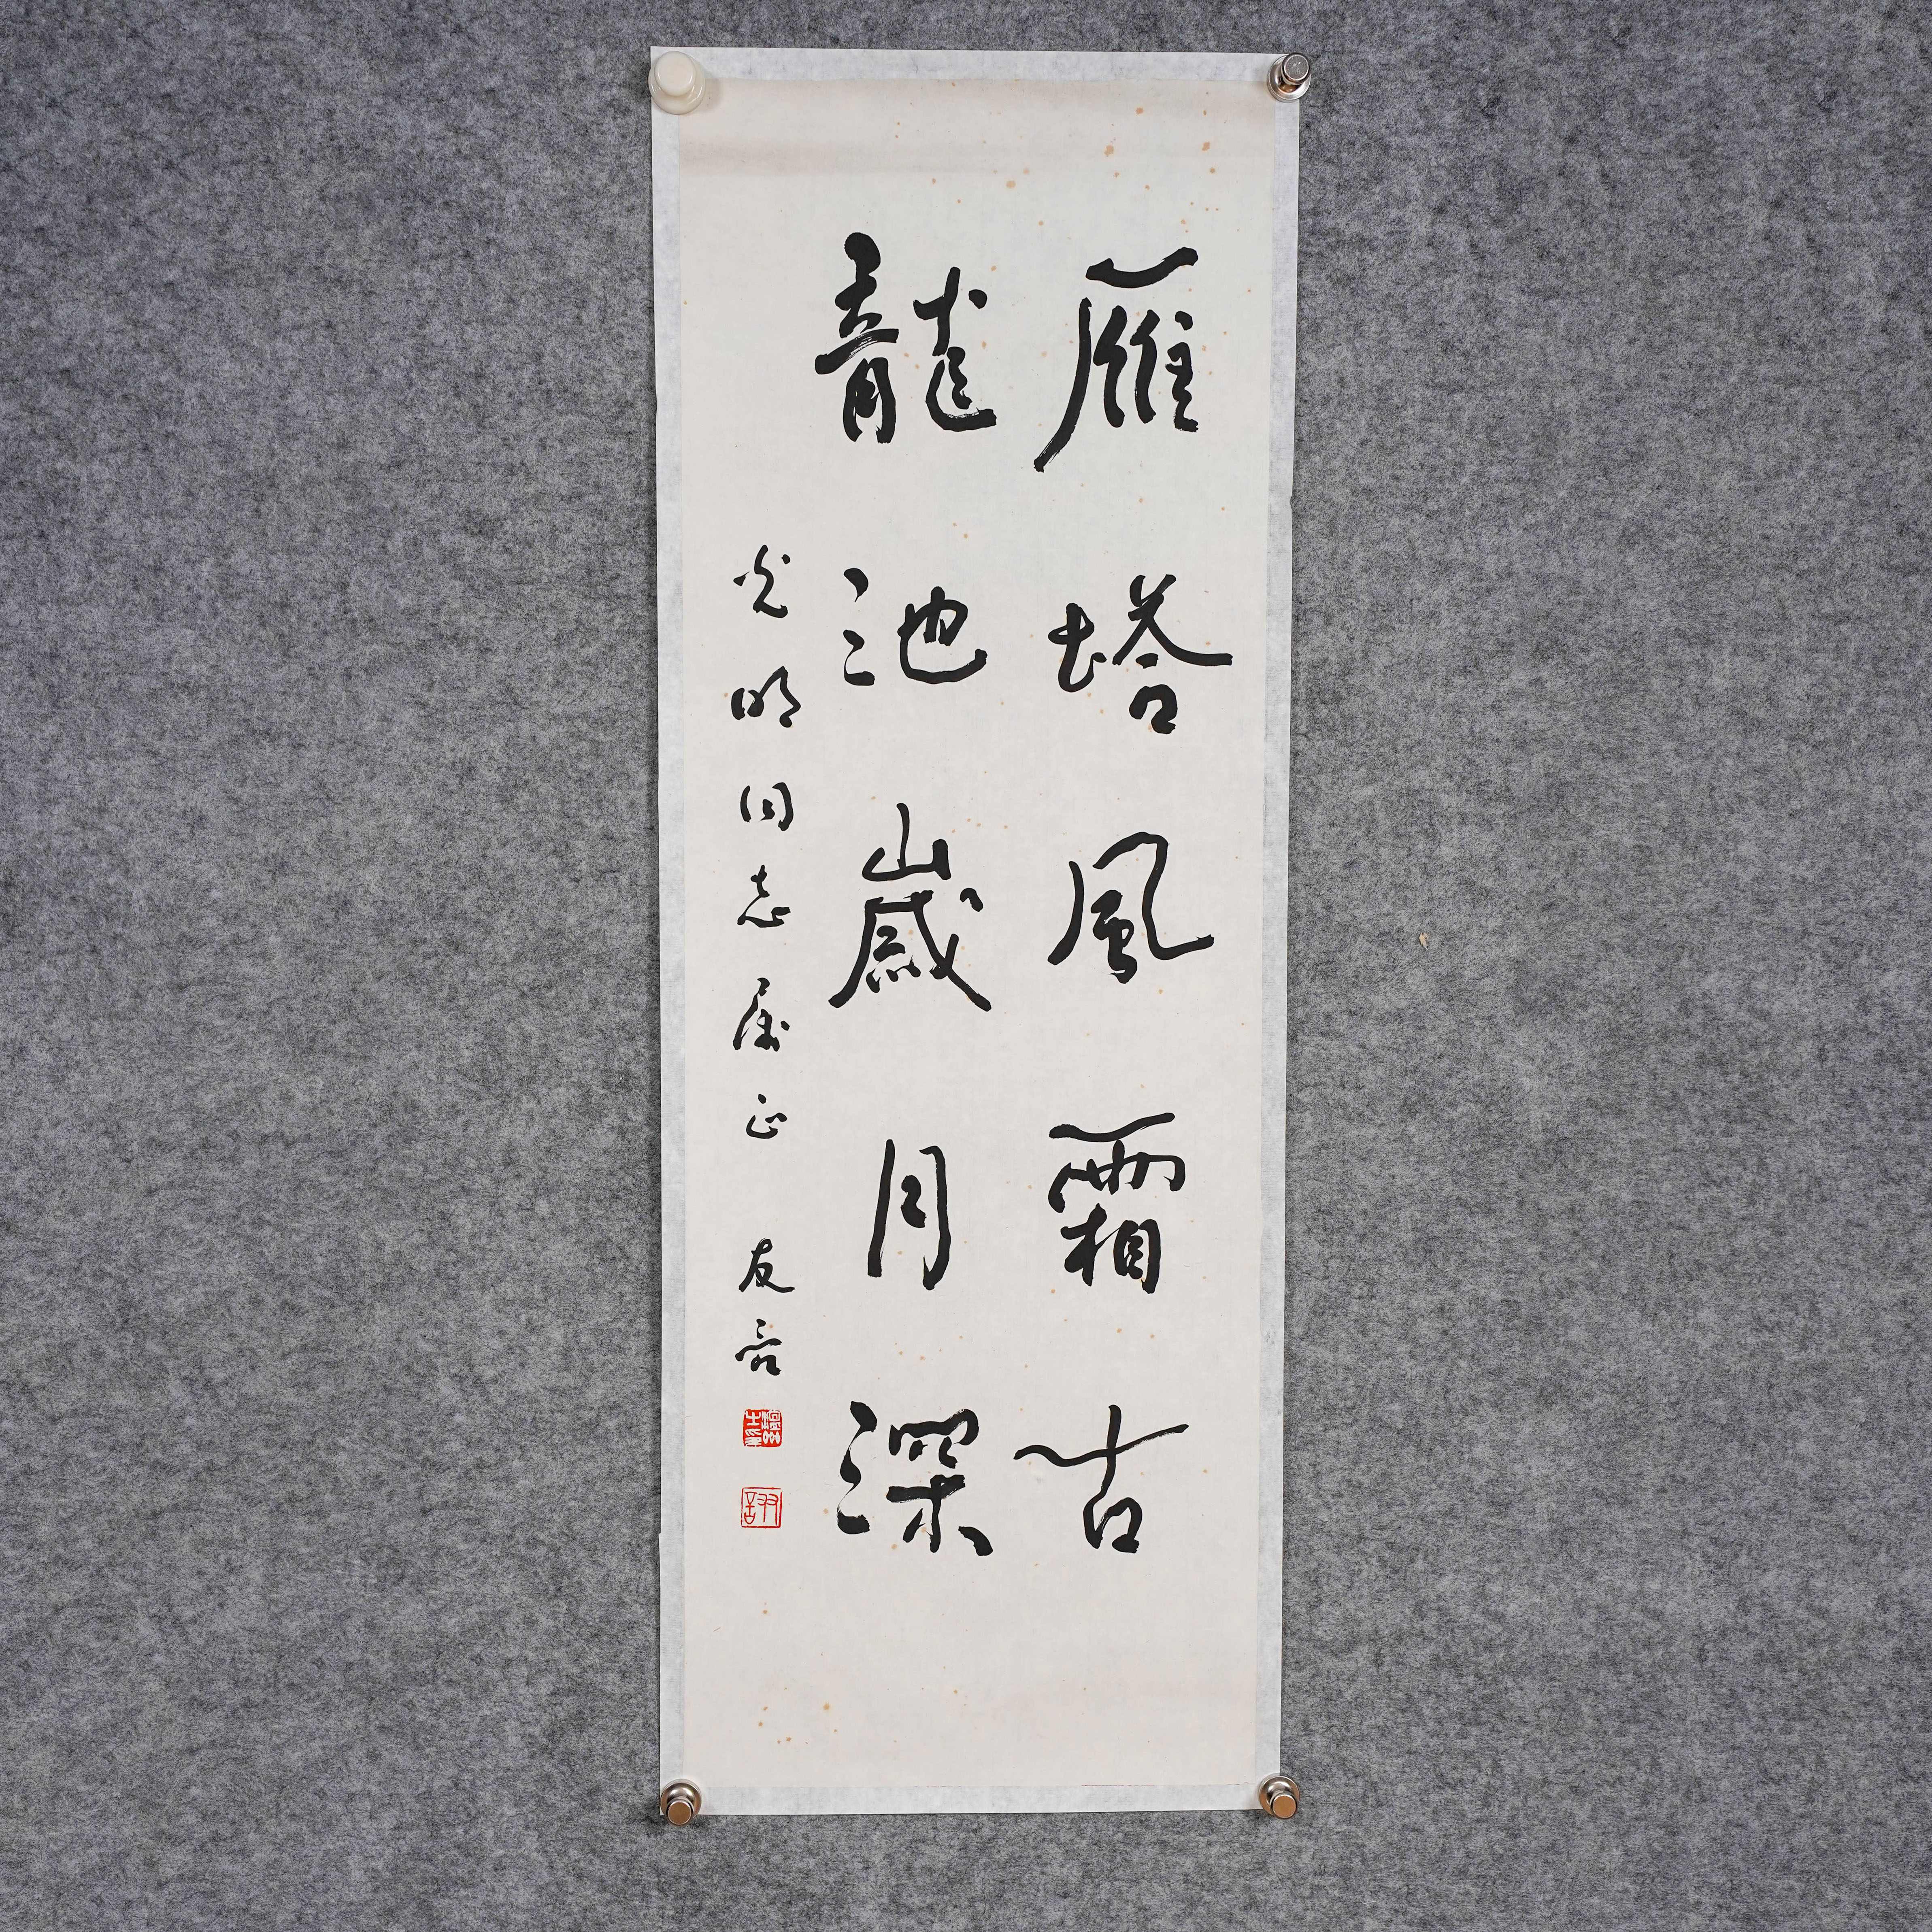 雁塔風霜古
龍池歲月深
光明同志属正
友言